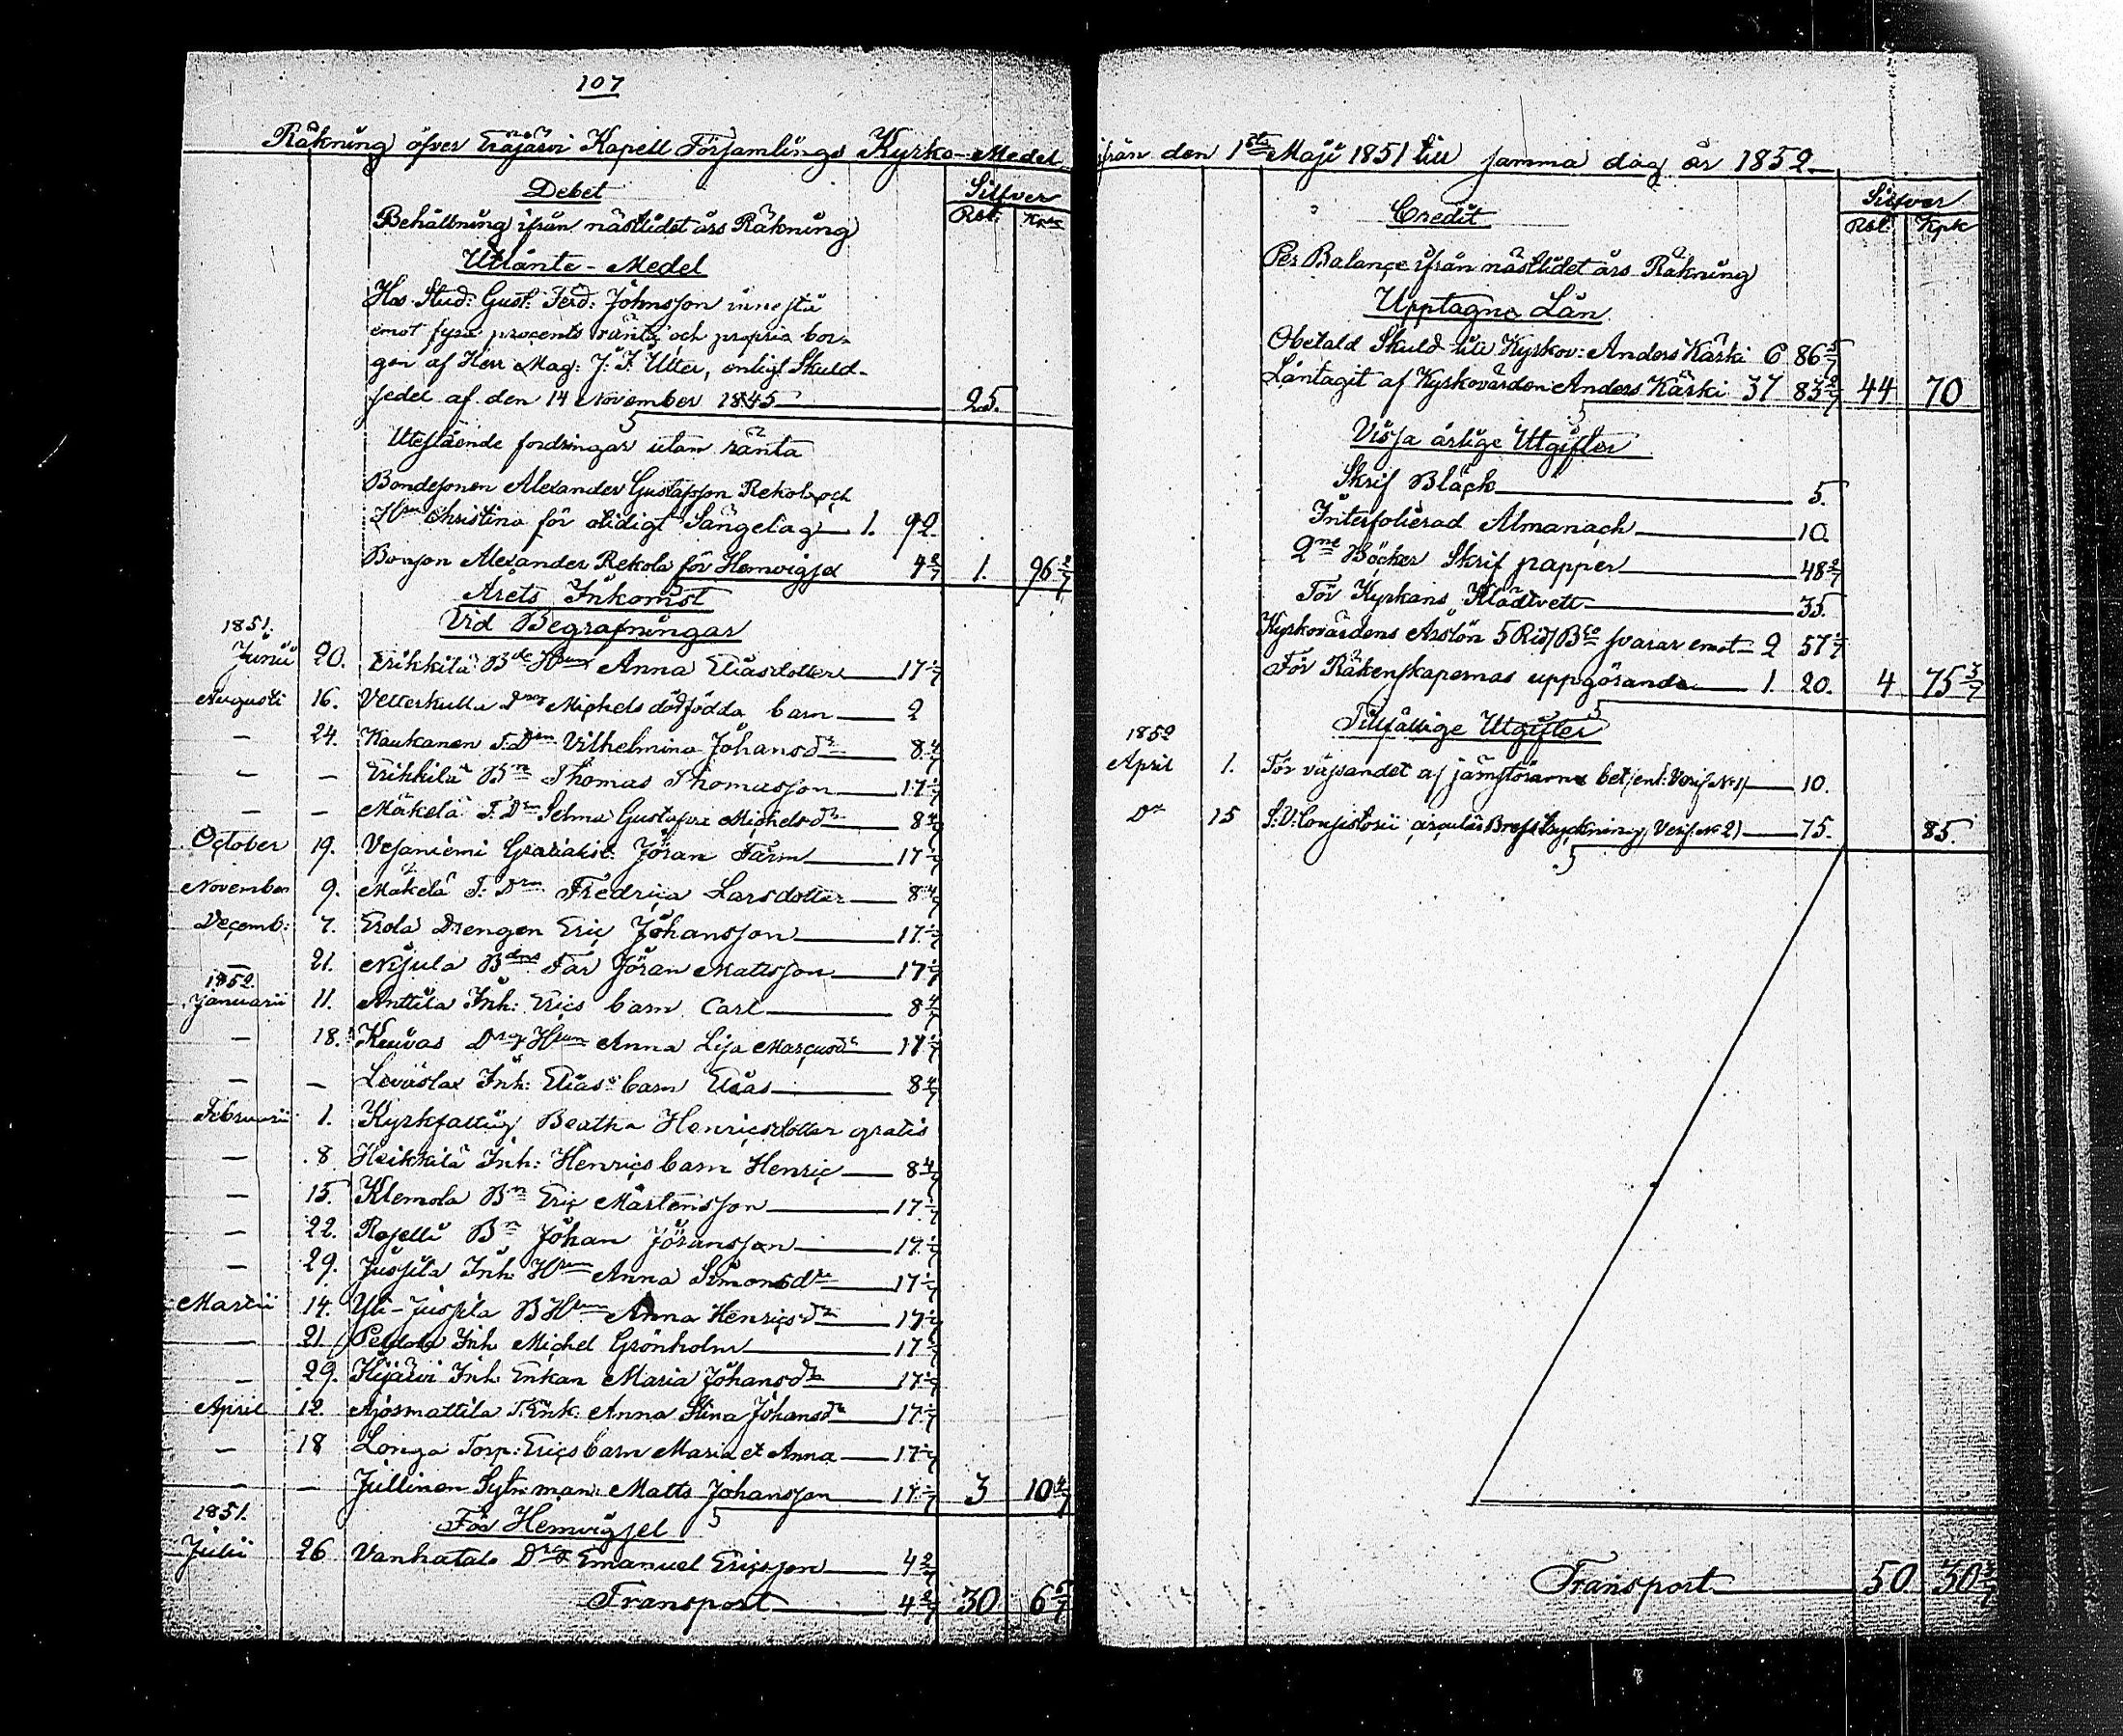 107
Räkning öfver Eräjärvi Kapell Församlings Kyrko-Medel
Debet
Silfver
Rbl. Kpk
Behållning ifrån nästlidet års Räkning
Utlånte-Medel
Hos Stud: Gust. Ferd: Johnsson innestå
emot fyra procents ränta och propria bor-
gen af Herr Mag: J. F. Utter, enligt Skuld-
sedel af den 14 November 1845 25.
Utestående fordringar utan ränta
Bondesonen Alexander Gustafsson Rekola och
Hru Christina för otidigt Sängelag 1. 92.
Bonson Alexander Rekola för Hemvigsel 4 2/7 1. 96 2/7
Årets Inkomst
Vid Begrafningar
1851.
Junii 20. Erikkilä Bde Hru Anna Eliasdotter 17 1/7
Augusti 16. Vetterkulla Drg Michels dödfödda barn 2
— 24. Kaukanen T. Drn Vilhelmina Johansdr 8 4/7
— — Erikkilä Bn Thomas Thomasson 17 1/7
— — Mäkelä T. Drn Selma Gustafva Michelsdr 8 4/7
October 19. Vesaniemi Jöran Färm 17 1/7
November 9. Mäkelä T. Drn Fredrica Larsdotter 8 4/7
Decemb: 7. Erola Drengen Eric Johansson 17 1/7
— 21. Bdns Far Jöran Mattsson 17 1/7
1852.
Januarii 11. Anttila Inh: Erics barn Carl 8 4/7
— 18. Kuivas Drg Hru Anna Lisa Marcusdr 17 1/7
— — Inh: Elias barn Elias 8 4/7
Februarii 1. Kyrkfattig Beatha Henricsdotter gratis
— 8 Heikkilä Inh: Henrics barn Henric 8 4/7
— 15. Klemola Bn Eric Mårtensson 17 1/7
— 22. Rajelli Bn Johan Jöransson 17 1/7
— 29. Jussila Inh. Hru Anna Simonsdr 17 1/7
Martii 14. Yli-Jussila B Hru Anna Henricsdr 17 1/7
— 21 Inh Michel Grönholm 17 1/7
— 29. Inh. Enkan Maria Johansdr 17 1/7
April 12 Ajosmattila T. Enk. Anna Stina Johansdr 17 1/7
— 18 Longa Torp: Erics barn Maria et Anna 17 1/7
— — Jullinen Sytn: man: Matts Johansson 17 1/7 3 10 4/7
1851.
För Hemvigsel
Julii 26 Vanhatalo Drg Emanuel Ericsson 4 2/7
Transport 4 2/7 30 6 6/7
ifrån den 1sta Maji 1851 till samma dag år 1852
Credit
Silfver
Rbl. Kpk
Per Balance ifrån nästlidet års Räkning
Upptagne Lån
Obetald Skuld till Kyrkov: Anders Kärki 6 86 5/7
Låntagit af Kyrkovärden Anders Kärki 37 83 2/7 44 70
Vissa årlige Utgifter
Skrif Bläck 5.
Interfolierad Almanach 10.
2ne Böcker Skrif papper 48 2/7
För Kyrkans Klädtvett 35.
Kyrkovärdens Årslön 5 Rid/Bco svarar emot 2 57 1/7
För Räkenskapernas uppgörande 1. 20. 4 75 3/7
Tillfällige Utgifter
1852
April 1. För vässandet af betj enl: Verif No 1) 10.
Do 15 circulär Brefs tryckning, Verif. No 2) 75. 85.
Transport 50 30 3/7